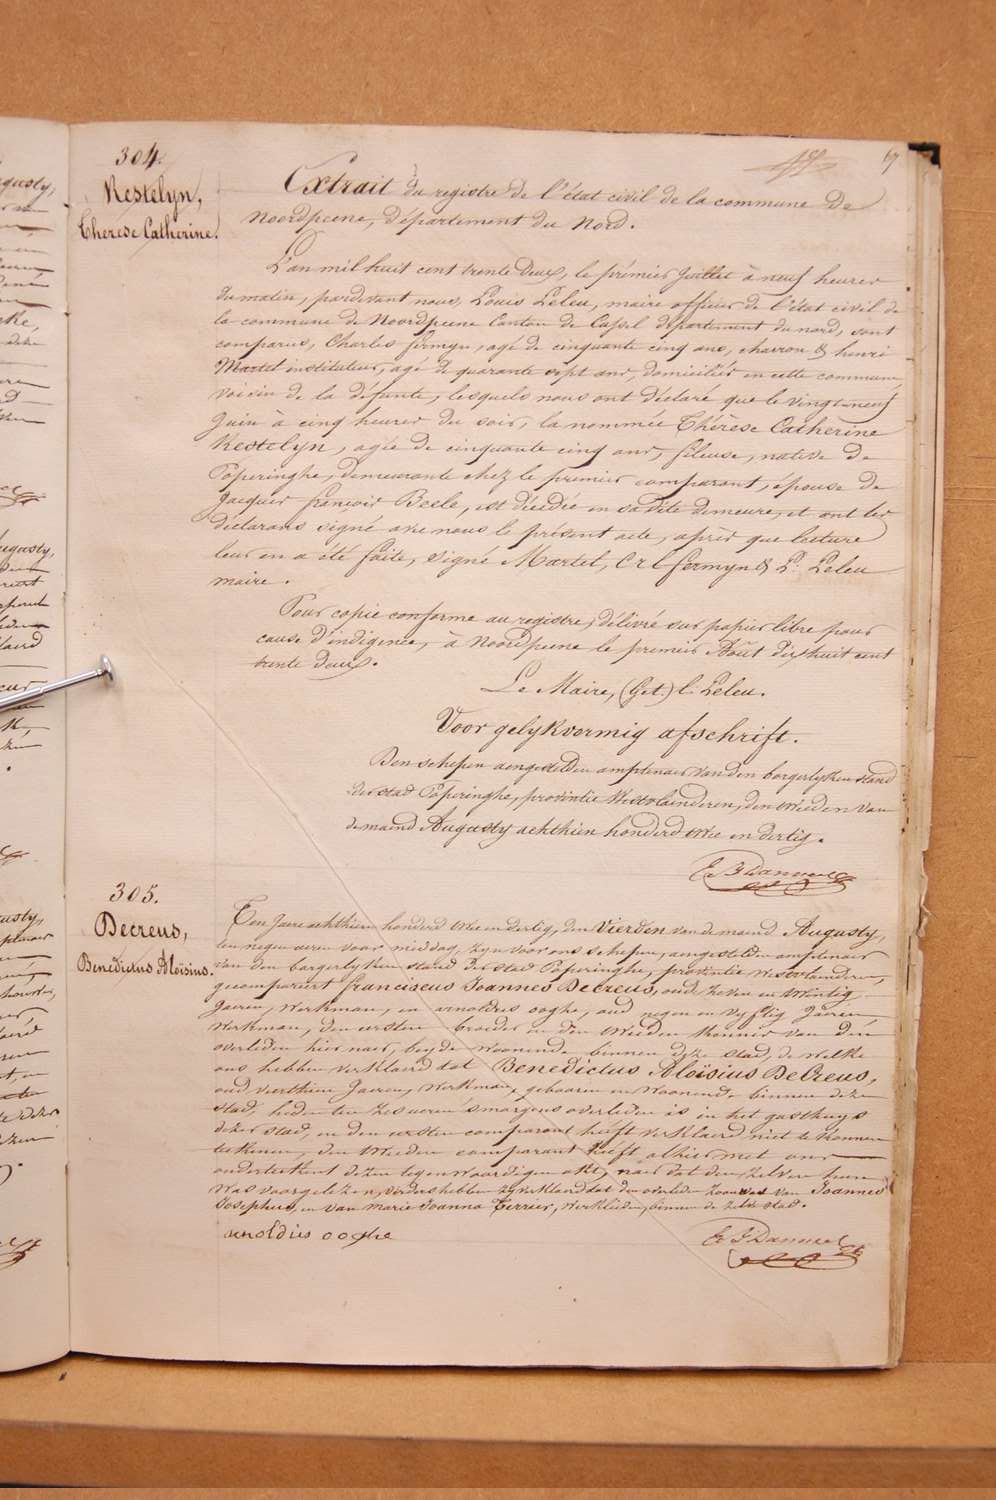 67
304.
Restelyn,
Therese Catherine.
Extrait du registre de l'état civil de la commune de
Noordpeene, département du Nord.
L'an mil huit cent trente deux, le prémier Juillet à neuf heures
du matin, pardevant nous, Louis Leleu, maire officier de l'état civil de
la commune de Noordpeene Canton de Cassel département du nord, sont
comparus, Charles fermyn, agé de cinquante cinq ans, charron & henri
Martel instituteur, agé de quarante sept ans, domiciliés en cette commune,
voisin de la défunte, lesquels nous ont déclaré que le vingt-neuf
Juin à cinq heures du soir, la nommée Thérèse Catherine
Restelyn, agée de cinquante cinq ans, fileuse, native de
Poperinghe, demeurante chez le premier comparant, épouse de
Jacques françois Beele, est décédée en sa dite demeure, et ont les
déclarans signé avec nous le présent acte, après que lecture
leur en a été faite, signé Martel, C fermyn & L. Leleu
maire.
Pour copie conforme au registre, délivré sur papier libre pour
cause d'indigence, à Noordpeene le premier Août dix huit cent
trente deux.
Le Maire, (Get.) L. Leleu.
Voor gelykvormig afschrift.
Den schepen aengestelden amptenaer van den borgerlyken stand
der stad Poperinghe, provintie Westvlaenderen, den tweeden van
de maend Augusty achthien honderd twee en dertig.
305.
Decreus,
Benedictus Aloïsius.
Ten jaere achthien honderd twee en dertig, den Vierden van de maend Augusty,
ten negen ueren voor middag, zyn voor ons schepen, aengestelden amptenaer
van den borgerlyken stand der stad Poperinghe, provintie Westvlaenderen,
gecompareert franciscus Joannes Decreus, oud zeven en twintig
Jaeren, Werkman, en arnoldus ooghe, oud negen en vyftig Jaeren,
Werkman, den eersten broeder en den tweeden Kennis van den
overleden hier naer, beyde woonende binnen deze stad, de welke
ons hebben verklaerd dat Benedictus Aloïsius DeCreus,
oud veerthien Jaeren, Werkman, gebooren en woonende binnen deze
stad, heden ten zes ueren s'morgens overleden is in het gasthuys
dezer stad, en den eersten comparant heeft verklaerd niet te konnen
teekenen, den tweeden comparant heeft alhier met ons
onderteekent dezen tegenwoordigen akt, naer dat den zelven hun
was voorgelezen, verders hebben zy verklaerd dat den overleden zoon was van Joannes
Josephus, en van Marie Joanna Terrier, Werklieden, binnen de zelve stad.
arnoldus ooghe